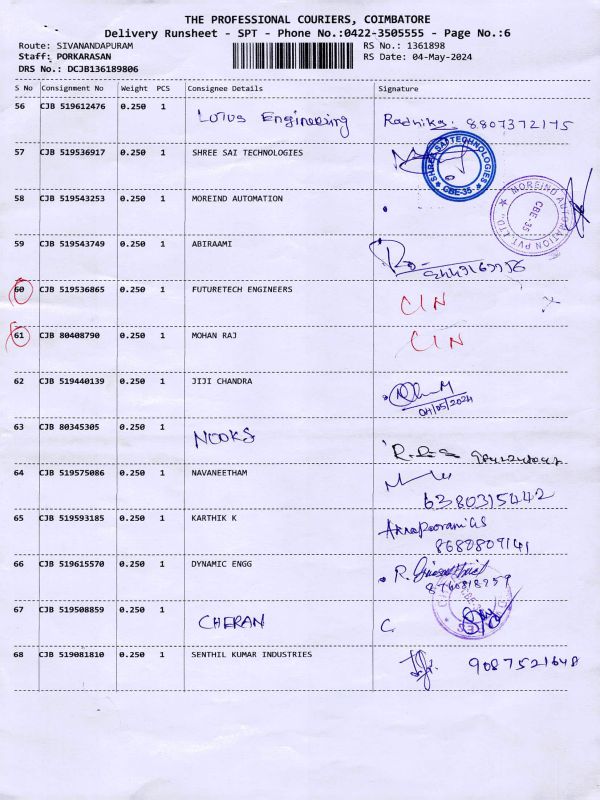 THE PROFESSIONAL COURIERS, COIMBATORE
Delivery Runsheet - SPT - Phone No.:0422-3505555 - Page No.:6
Route: SIVANANDAPURAM RS No.: 1361898
Staff: PORKARASAN RS Date: 04-May-2024
DRS No.: DCJB136189806
S No Consignment No Weight PCS Consignee Details Signature
56 CJB 519612476 0.250 1 Lotus Engineering Radhika: 8807372175
57 CJB 519536917 0.250 1 SHREE SAI TECHNOLOGIES
SHREE SAI TECHNOLOGIES
* CBE-35 *
58 CJB 519543253 0.250 1 MOREIND AUTOMATION
MOREIND AUTOMATION PVT. LTD.
CBE-35
59 CJB 519543749 0.250 1 ABIRAAMI
60 CJB 519536865 0.250 1 FUTURETECH ENGINEERS CIN
61 CJB 80408790 0.250 1 MOHAN RAJ CIN
62 CJB 519440139 0.250 1 JIJI CHANDRA
04/05/2024
63 CJB 80345305 0.250 1 NOOKS
64 CJB 519575086 0.250 1 NAVANEETHAM
6380315442
65 CJB 519593185 0.250 1 KARTHIK K
8680809141
66 CJB 519615570 0.250 1 DYNAMIC ENGG R.
8760818259
67 CJB 519508859 0.250 1 CHERAN C
68 CJB 519081810 0.250 1 SENTHIL KUMAR INDUSTRIES 9087521648